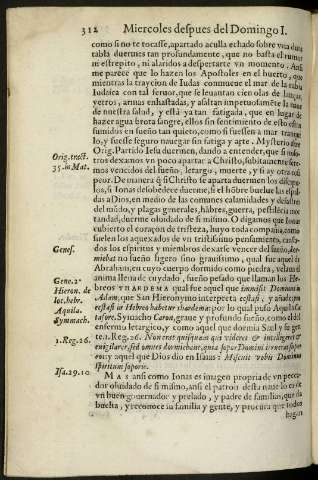 312 Miercoles despues del Domingo I.
como si no te tocasse, apartado aculla echado sobre vna dura
tabla duermes tan profundamente, que no basta el rumor
ni estrepito, ni alaridos a despertarte vn momento. Ansi
me parece que lo hazen los Apostoles en el huerto, que
mientras la traycion de Iudas conmueue el mar de la rabia
Iudaica con tal feruor, que se leuantan cien olas de lanças,
yerros, armas enhastadas, y assaltan impetuosamẽte la naue
de nuestra salud, y està ya tan fatigada, que en lugar de
hazer agua brota sangre, ellos sin sentimiento de esto estan
sumidos en sueño tan quieto, como si fuessen a mar tranqui
lo, y fuesse seguro nauegar sin fatiga y arte. Mysterio
Orig. tract.
35. in Mat.
Orig. Partido Iesu duermen, dando a entender, que si noso-
tros dexamos vn poco apartar a Christo, subitamente
mos vencidos del sueño, letargo, muerte, y si ay otra cosa
peor. De manera q̃ si Christo se aparta duermen los discipu-
los, si Ionas desobedece duerme, si el hõbre buelue las espal
das a Dios, en medio de las comunes calamidades y desastres
del mũdo, y plagas generales, hãbre, guerra, pestilẽcia
tandad, duerme oluidado de si mismo. O digamos que Ionas
cubierto el coraçon de tristeza, huyo toda compañia, como
suelen los aquexados de vn tristissimo pensamiento, cansa-
Genes.
dos los espiritus y miembros dexarse vencer del sueño, dor
miebat no sueño ligero sino grauissimo, qual fue aquel de
Abraham, en cuyo cuerpo dormido como piedra, velaua el
Gene. 2.
Hieron. de
loc. hebr.
Aquila.
Symmach.
anima llena de cuydado, sueño pesado que llaman los He-
breos THARDEMA qual fue aquel que immisit Dominus in
Adam, que San Hieronymo interpreta ecstasi, y añade, pro
ecstasi in Hebreo habetur thardema: por lo qual puso Aquila
tafore, Symacho Caron, graue y profundo sueño, como de
enfermo letargico, y como aquel que dormia Saul y su gen
1. Reg. 26.
te. 1. Reg. 26. Non erat quisquam qui videret & intelligeret &
euigilaret, sed omnes dormiebant, quia sopor Domini irruerat super
Isa. 29. 10.
eos: y aquel que Dios dio en Isaias: Miscuit vobis Dominus
spiritum soporis.
MAS ansi como Ionas es imagen propria de vn pecca-
dor oluidado de si mismo, ansi el patron desta naue lo es de
vn buen gouernador y prelado, y padre de familia, que da
buelta, y reconoce su familia y gente, y procura que todos
hagan